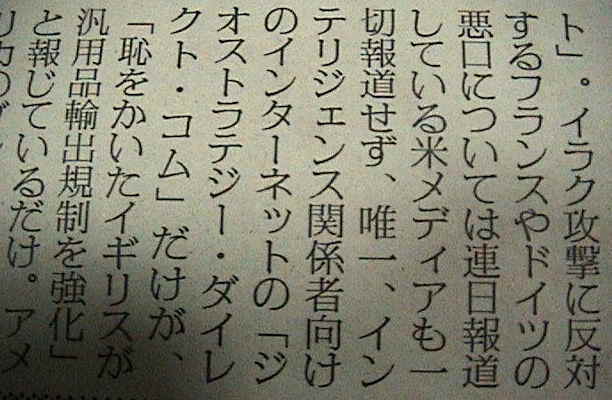 ト」。イラク攻撃に反対
するフランスやドイツの
悪口については連日報道
している米メディアも一
切報道せず、唯一、イン
テリジェンス関係者向け
のインターネットの「ジ
オストラテジー・ダイレ
クト・コム」だけが、
「恥をかいたイギリスが
汎用品輸出規制を強化」
と報じているだけ。アメ
リカの